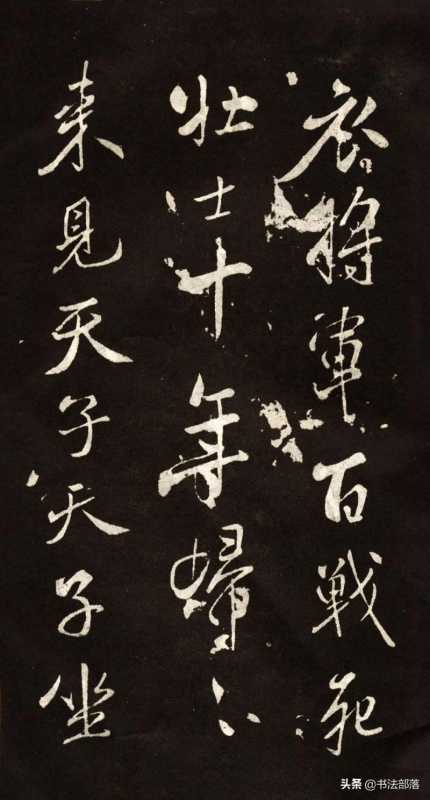 衣將軍百戰死
壯士十年歸々
來見天子天子坐
头条 @书法部落